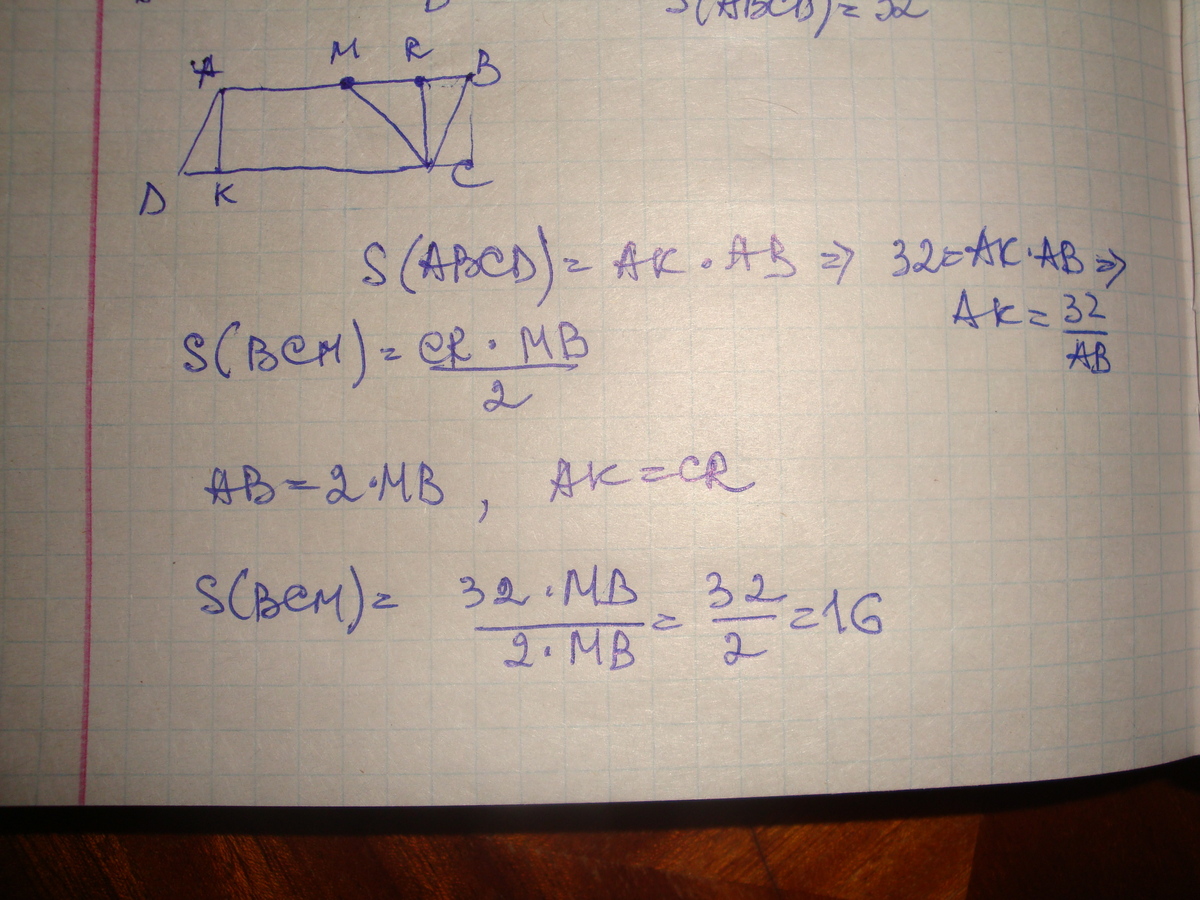 S(ABCD) = 32
A M R B
D K C
S(ABCD) = AK · AB => 32 = AK · AB =>
AK = 32/AB
S(BCM) = CR · MB / 2
AB = 2 · MB , AK = CR
S(BCM) = 32 · MB / 2 · MB = 32/2 = 16